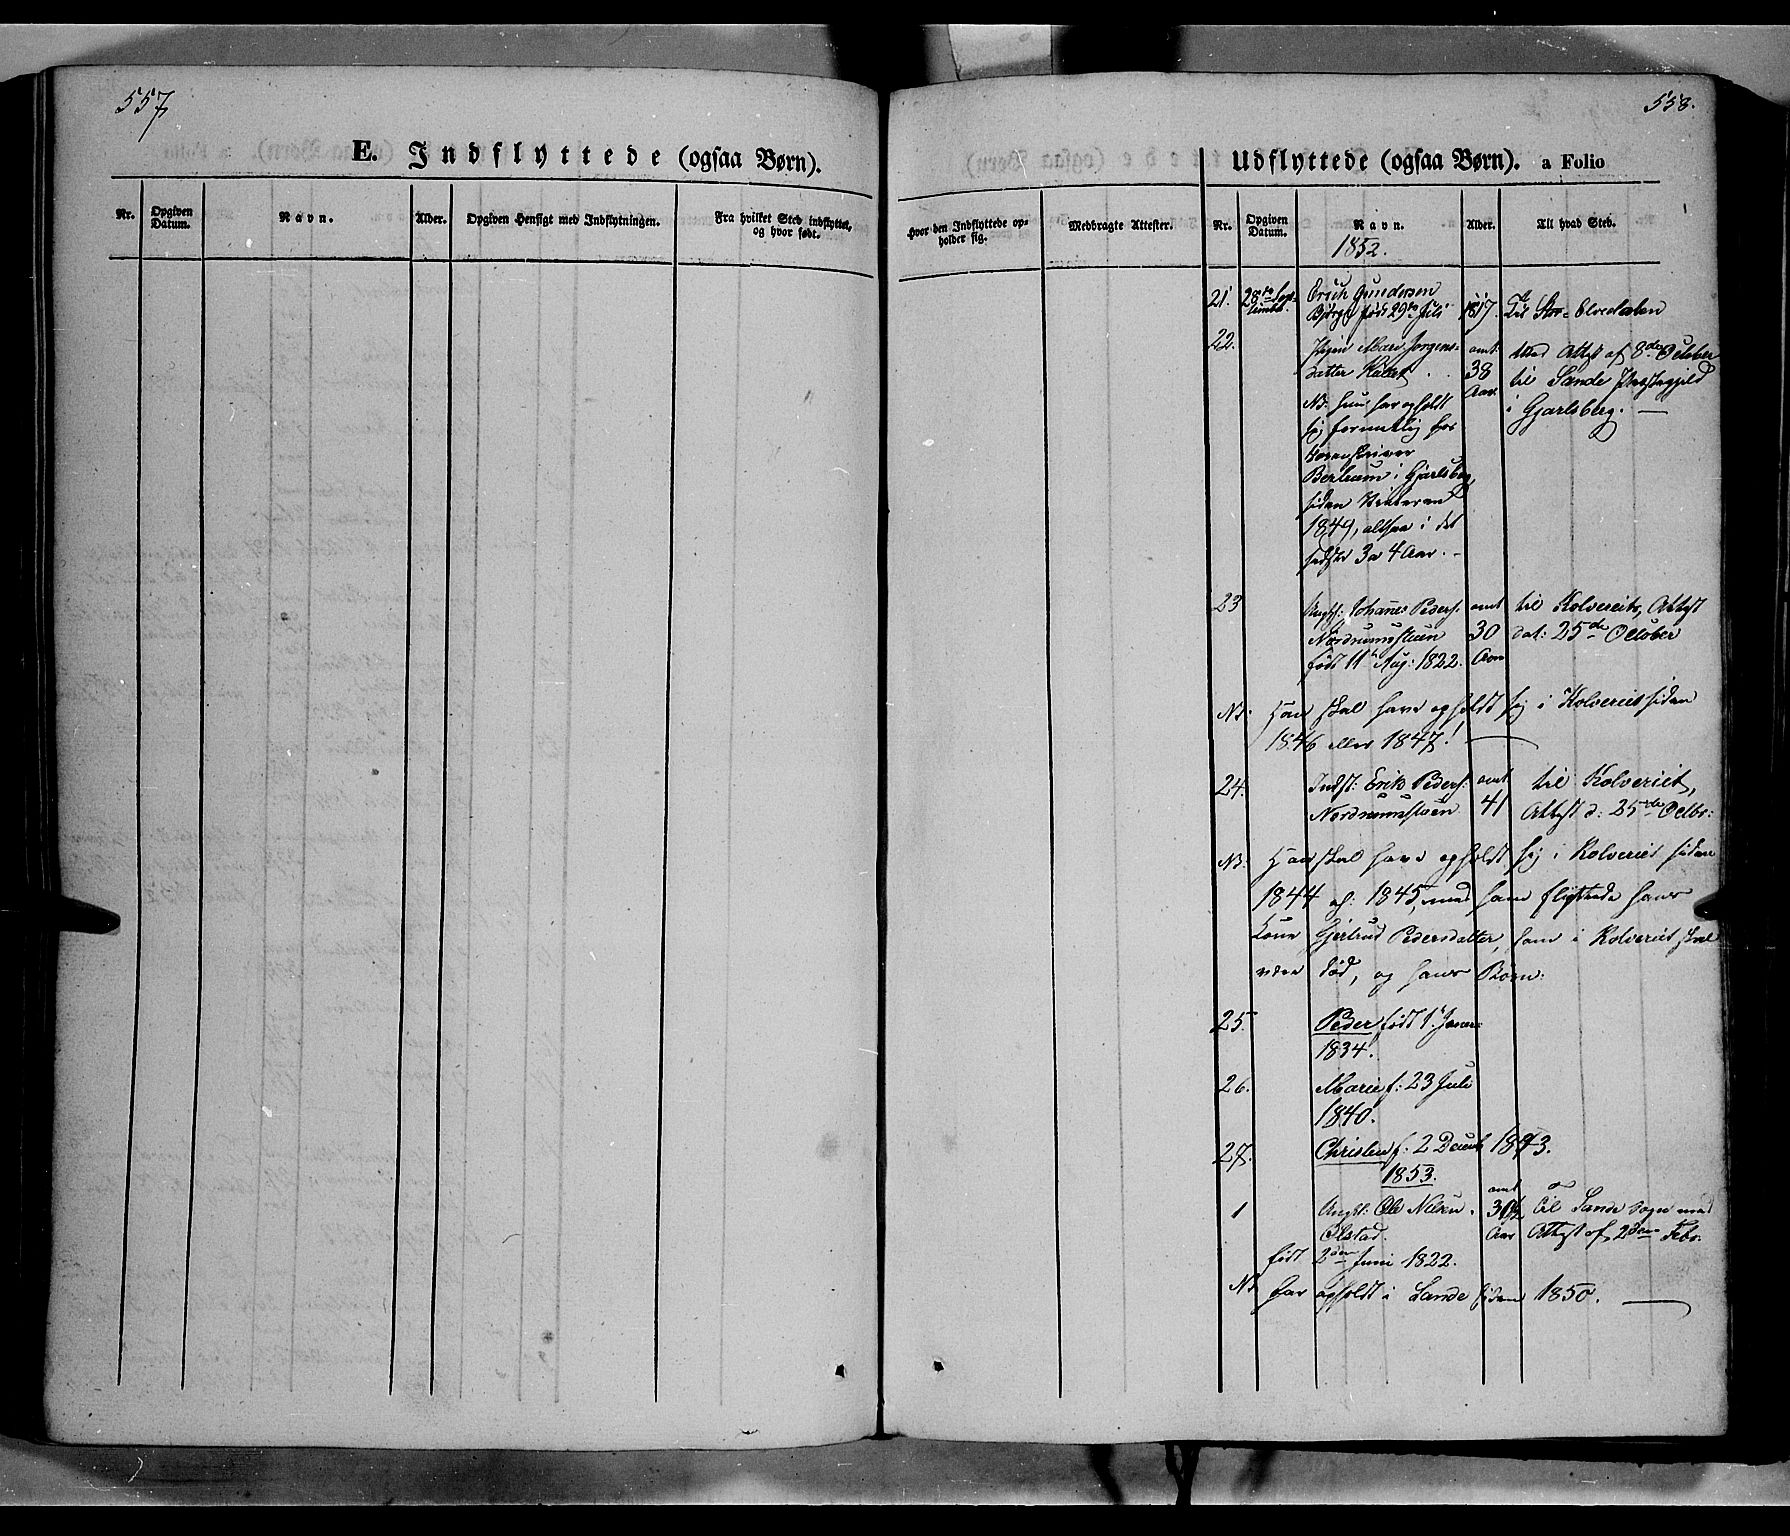 557
558.
E. Indflyttede (ogsaa Børn).
Udflyttede (ogsaa Børn). a Folio
Nr.
Opgiven Datum.
Navn.
Alder.
Opgiven Hensigt med Indflytningen.
Fra hvilket Sted indflyttet, og hvor født.
Hvor den Indflyttede opholder sig.
Medbragte Attester.
Nr.
Opgiven Datum.
Navn.
Alder.
Til hvad Sted.
1852.
21. 28de Sep- Erich Gundersen
tembr. født 29de Juli 1817. til Stor-Elvedalen
22. Pigen Mari Jorgens- omt. med Attest af 8de October
datter 38 til Sande Præstegjeld
Nb. hun har opholdt Aar i Gjarlsberg.
sig fornemlig hos
Sorenskriver
i Gjarlsberg,
siden Vinteren
1849, altsaa i det
sidste 3 a 4 Aar.
23 Ungk: Johanes Peders. omt til Kolvereit, Attest
Nordrumsstuen 30 dat: 25de October
født 11te Aug: 1822. Aar
Nb: Han skal have opholdt sig i Kolvereit siden
1846 eller 1847.
24. Indst: Erik Peders. omt til Kolvereit,
Nordrumsstuen 41 Attest d: 25de Octbr:
NB: Han skal have opholdt sig i Kolvereit siden
1844 a: 1845, med ham flyttede hans
Kone Gjertrud Pedersdatter, som i Kolvereit skal
være død, og hans Børn:
25. Peder født 1te Januar
1834.
26. Marie f: 23 Juli
1840.
27. Christen f: 2 Decemb 1843.
1853.
1 Ungk: Ole Nilsen omt 30½ Til Sande Sogn med
Olstad. Aar Attest af 2den Febr.
født 2den Juni 1822.
Nb har opholdt i Sande siden 1850.